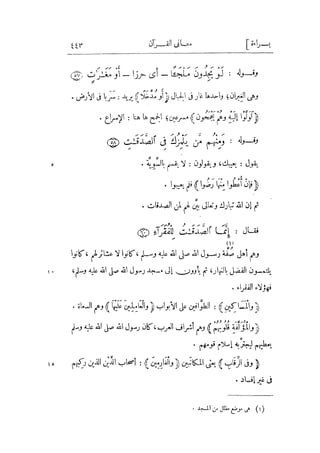 [ بـــراءة معـانى القــرآن ٤٤٣
وقــوله : لَوْ يَجِدُونَ مَلْجَـًٔا – أى حرزا – أَوْ مَغَـٰرَٰتٍ ﴿٥٧﴾
وهى الغِيران؛ واحدها غار فى الجبال (أَوْ مُدَّخَلًا) يريد : سَرَبا فى الأرض .
(لَوَلَّوْا إِلَيْهِ وَهُمْ يَجْمَحُونَ) مسرعين؛ الجمح ها هنا : الإسراع .
وقــوله : وَمِنْهُم مَّن يَلْمِزُكَ فِى ٱلصَّدَقَـٰتِ ﴿٥٨﴾
يقول : يعيبك، ويقولون : لا يقسم بالسَّوِيَّة . ٥
(فَإِنْ أُعْطُوا مِنْهَا رَضُوا) فلم يعيبوا .
ثم إن الله تبارك وتعالى بيَّن لهم لمن الصدقات .
فقــال : إِنَّمَا ٱلصَّدَقَـٰتُ لِلْفُقَرَآءِ ﴿٦٠﴾
وهم أهل صُفَّة رســول الله صلى الله عليه وســلم ، كانوا لا عشائر لهم ، كانوا
يلتمسون الفضل بالنهار، ثم يأوون إلى مسجد رسول الله صلى الله عليه وسلم، ١٠
فهؤلاء الفقراء .
(وَالْمَسَاكِينِ) : الطوّافين على الأبواب (وَالْعَامِلِينَ عَلَيْهَا) وهم السعاة .
(وَالْمُؤَلَّفَةِ قُلُوبُهُمْ) وهم أشراف العرب، كان رسول الله صلى الله عليه وسلم
يعطيهم ليجترَّ به إسلام قومهم .
(وَفِى الرِّقَابِ) يعنى المكاتبين (وَالْغَارِمِينَ) : أصحاب الدَّيْن الذين ركبهم ١٥
فى غير إفساد .
(١) هى موضع مظلل من المسجد .